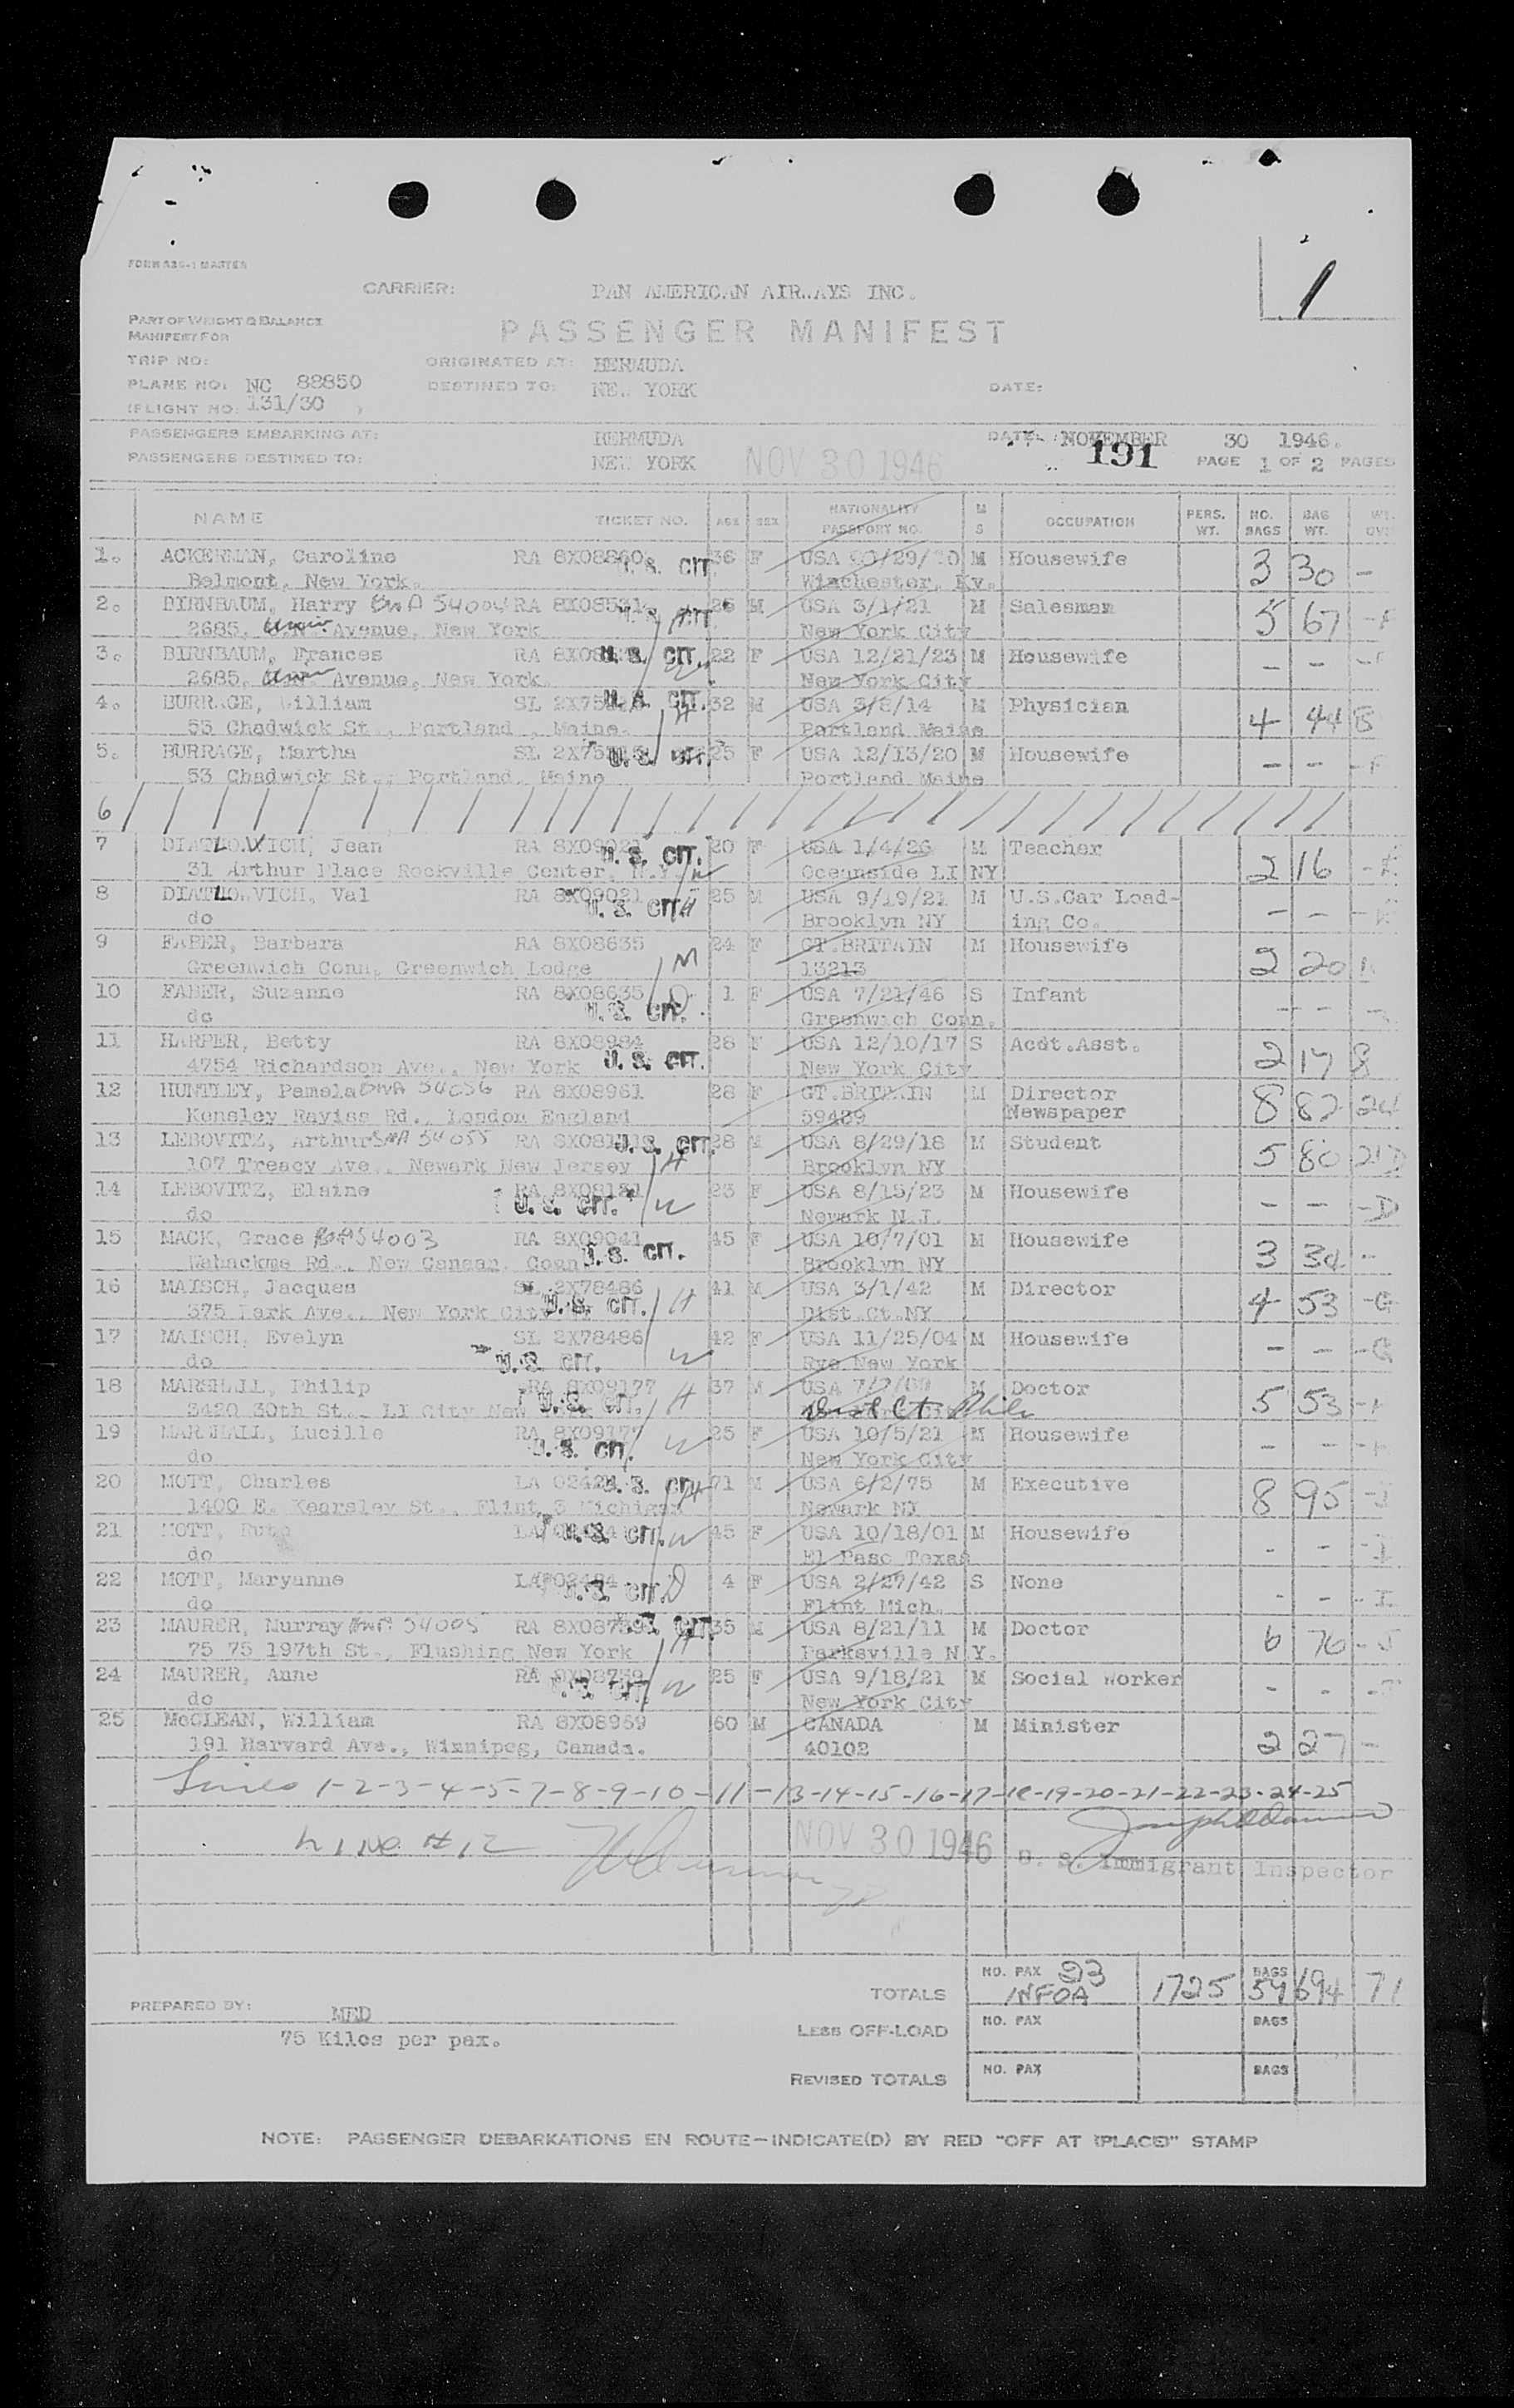 FORM 
1
CARRIER: PAN AMERICAN AIRWAYS INC.
PART OF WEIGHT & BALANCE
MANIFEST FOR
PASSENGER MANIFEST
TRIP NO: ORIGINATED AT: BERMUDA
PLANE NO: NC 88850 DESTINED TO: NEW YORK DATE:
(FLIGHT NO: 131/30 )
PASSENGERS EMBARKING AT: BERMUDA DATE: NOVEMBER 30 1946.
PASSENGERS DESTINED TO: NEW YORK NOV 30 1946 191 PAGE 1 OF 2 PAGES
NAME TICKET NO. AGE SEX NATIONALITY PASSPORT NO. M S OCCUPATION PERS. WT. NO. BAGS BAG WT.
1. ACKERMAN, Caroline RA 8X08860 U. S. CIT. 36 F USA M Housewife 3 30 -
Belmont, New York. Winchester, Ky.
2. BIRNBAUM, Harry BWA 54004 RA U. S. CIT. M USA 3/1/21 M Salesman 5 67
2685, Univ. Avenue, New York H New York City
3. BIRNBAUM, Frances RA U. S. CIT. 22 F USA 12/21/23 M Housewife - -
2685, Univ Avenue, New York W New York City
4. BURRAGE, William SL U. S. CIT. 32 M USA 3/8/14 M Physician 4 44 B
53 Chadwick St., Portland, Maine. H Portland Maine
5. BURRAGE, Martha SL U. S. CIT. 25 F USA 12/13/20 M Housewife - -
53 Chadwick St., Portland, Maine Portland Maine
6
7 DIATLOVICH, Jean RA 8X09021 U. S. CIT. 20 F USA 1/4/26 M Teacher 2 16
31 Arthur Place Rockville Center, N.Y. W Oceanside LI NY
8 DIATLOVICH, Val RA 8X09021 U. S. CIT. H 25 M USA 9/19/21 M U.S.Car Load- - -
do Brooklyn NY ing Co.
9 FABER, Barbara RA 8X08635 24 F GT.BRITAIN M Housewife 2 20
Greenwich Conn, Greenwich Lodge M 13213
10 FABER, Suzanne RA 8X08635 D 1 F USA 7/21/46 S Infant - -
do U. S. CIT. Greenwich Conn.
11 HARPER, Betty RA 8X08984 28 F USA 12/10/17 S Acdt.Asst. 2 17 8
4754 Richardson Ave., New York U. S. CIT. New York City
12 HUNTLEY, Pamela BWA 54056 RA 8X08961 28 F GT.BRITAIN M Director 8 82 24
Kensley Rayiss Rd., London England 59489 Newspaper
13 LEBOVITZ, Arthur BWA 54055 RA U. S. CIT. 28 M USA 8/29/18 M Student 5 80 21D
107 Treacy Ave., Newark New Jersey H Brooklyn NY
14 LEBOVITZ, Elaine RA 8X08181 23 F USA 8/15/23 M Housewife - - -D
do U. S. CIT. W Newark N.J.
15 MACK, Grace BWA 54003 RA 8X09041 45 F USA 10/7/01 M Housewife 3 34 -
Wahackme Rd., New Canaan, Conn U. S. CIT. Brooklyn NY
16 MAISCH, Jacques SL 2X78486 41 M USA 3/1/42 M Director 4 53 -G
375 Park Ave., New York City U. S. CIT. H Dist.Ct.NY
17 MAISCH, Evelyn SL 2X78486 42 F USA 11/25/04 M Housewife - - -G
do U. S. CIT. W Rye New York
18 MARSHALL, Philip RA 8X09177 37 M USA M Doctor 5 53
3420 30th St., LI City New U. S. CIT. H Dist Ct
19 MARSHALL, Lucille RA 8X09177 25 F USA 10/5/21 M Housewife - -
do U. S. CIT. W New York City
20 MOTT, Charles LA U. S. CIT. 71 M USA 6/2/75 M Executive 8 95
1400 E. Kearsley St., Flint, 3 Michigan H Newark NJ
21 MOTT, Ruth LA U. S. CIT. W 45 F USA 10/18/01 M Housewife - -
do El Paso Texas
22 MOTT, Maryanne LA 4 F USA 2/27/42 S None - -
do U. S. CIT. D Flint Mich.
23 MAURER, Murray BWA 54005 RA U. S. CIT. 35 M USA 8/21/11 M Doctor 6 76 -J
75 75 197th St., Flushing New York H Parksville N.Y.
24 MAURER, Anne RA 8X08739 25 F USA 9/18/21 M Social Worker - -
do U. S. CIT. W New York City
25 McCLEAN, William RA 8X08959 60 M CANADA M Minister 2 27 -
191 Harvard Ave., Winnipeg, Canada. 40102
Lines 1-2-3-4-5-7-8-9-10-11-13-14-15-16-17-18-19-20-21-22-23-24-25
LINE #12 NOV 30 1946 U. S. Immigrant Inspector
TOTALS NO. PAX 23 1725 BAGS 59 694 71
PREPARED BY: MED
75 Kilos per pax.
LESS OFF-LOAD NO. PAX BAGS
REVISED TOTALS NO. PAX BAGS
NOTE: PASSENGER DEBARKATIONS EN ROUTE—INDICATE(D) BY RED "OFF AT (PLACE)" STAMP